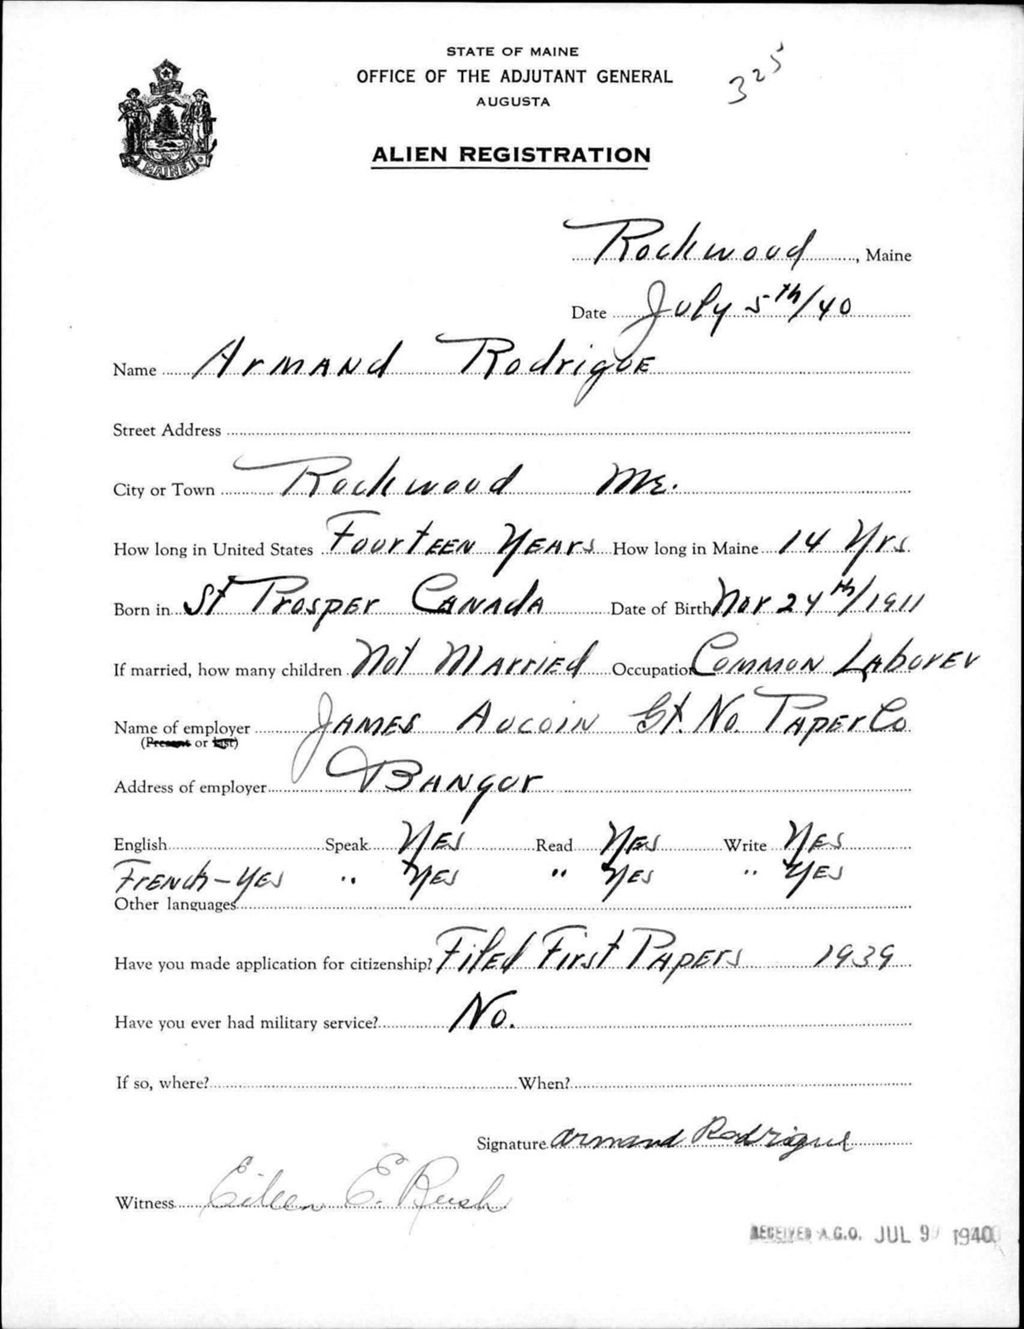 STATE OF MAINE
OFFICE OF THE ADJUTANT GENERAL
AUGUSTA
325
ALIEN REGISTRATION
MAINE
Rockwood, Maine
Date July 5th/40
Name Armand Rodrigue
Street Address
City or Town Rockwood Me.
How long in United States Fourteen Years How long in Maine 14 Yrs
Born in St Prosper Canada Date of Birth Nov 24th/1911
If married, how many children Not Married Occupation Common Laborer
Name of employer James Aucoin Gt. No. Paper Co
(Present or last)
Address of employer Bangor
English Speak Yes Read Yes Write Yes
French - Yes " Yes " Yes " Yes
Other languages
Have you made application for citizenship? Filed First Papers 1939
Have you ever had military service? No.
If so, where? When?
Signature Armand Rodrigue
Witness Eileen E. Rush
RECEIVED A.G.O. JUL 9 1940